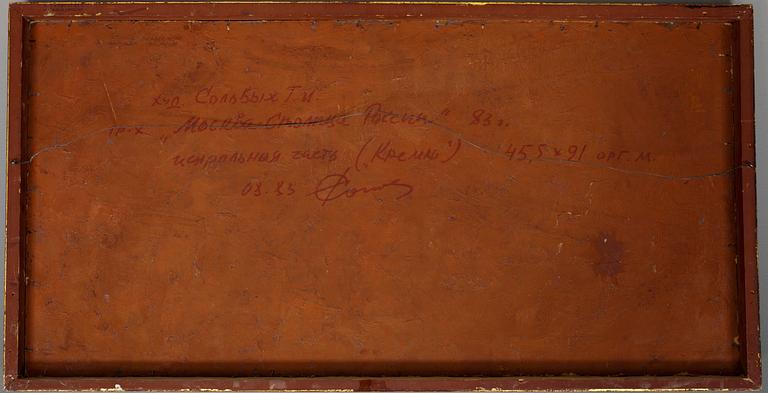 худ. Соловых Т и
тр-х „Москва-Столица России" 83 г.
центральная часть (Кремль) 45,5 x 91 орг. м.
03.83